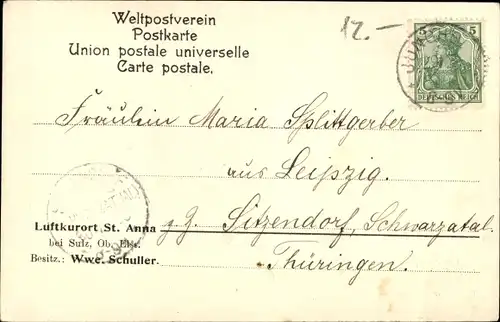 Weltpostverein
Postkarte
Union postale universelle
Carte postale.
12.—
5 5
DEUTSCHES REICH
Fräulein Maria Splittgerber
aus Leipzig.
Luftkurort St. Anna
bei Sulz, Ob. Els.
Besitz.: Wwe. Schuller.
z. Z. Sitzendorf, Schwarzatal.
Thüringen.